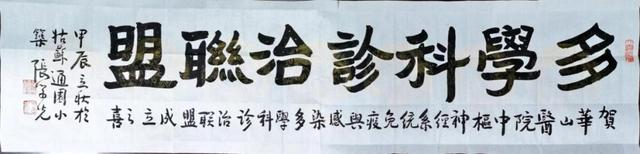 多學科診治聯盟
賀華山醫院中樞神經系統免疫與感染多學科診治聯盟成立之喜
甲辰立秋於
姑蘇通園小
築 張